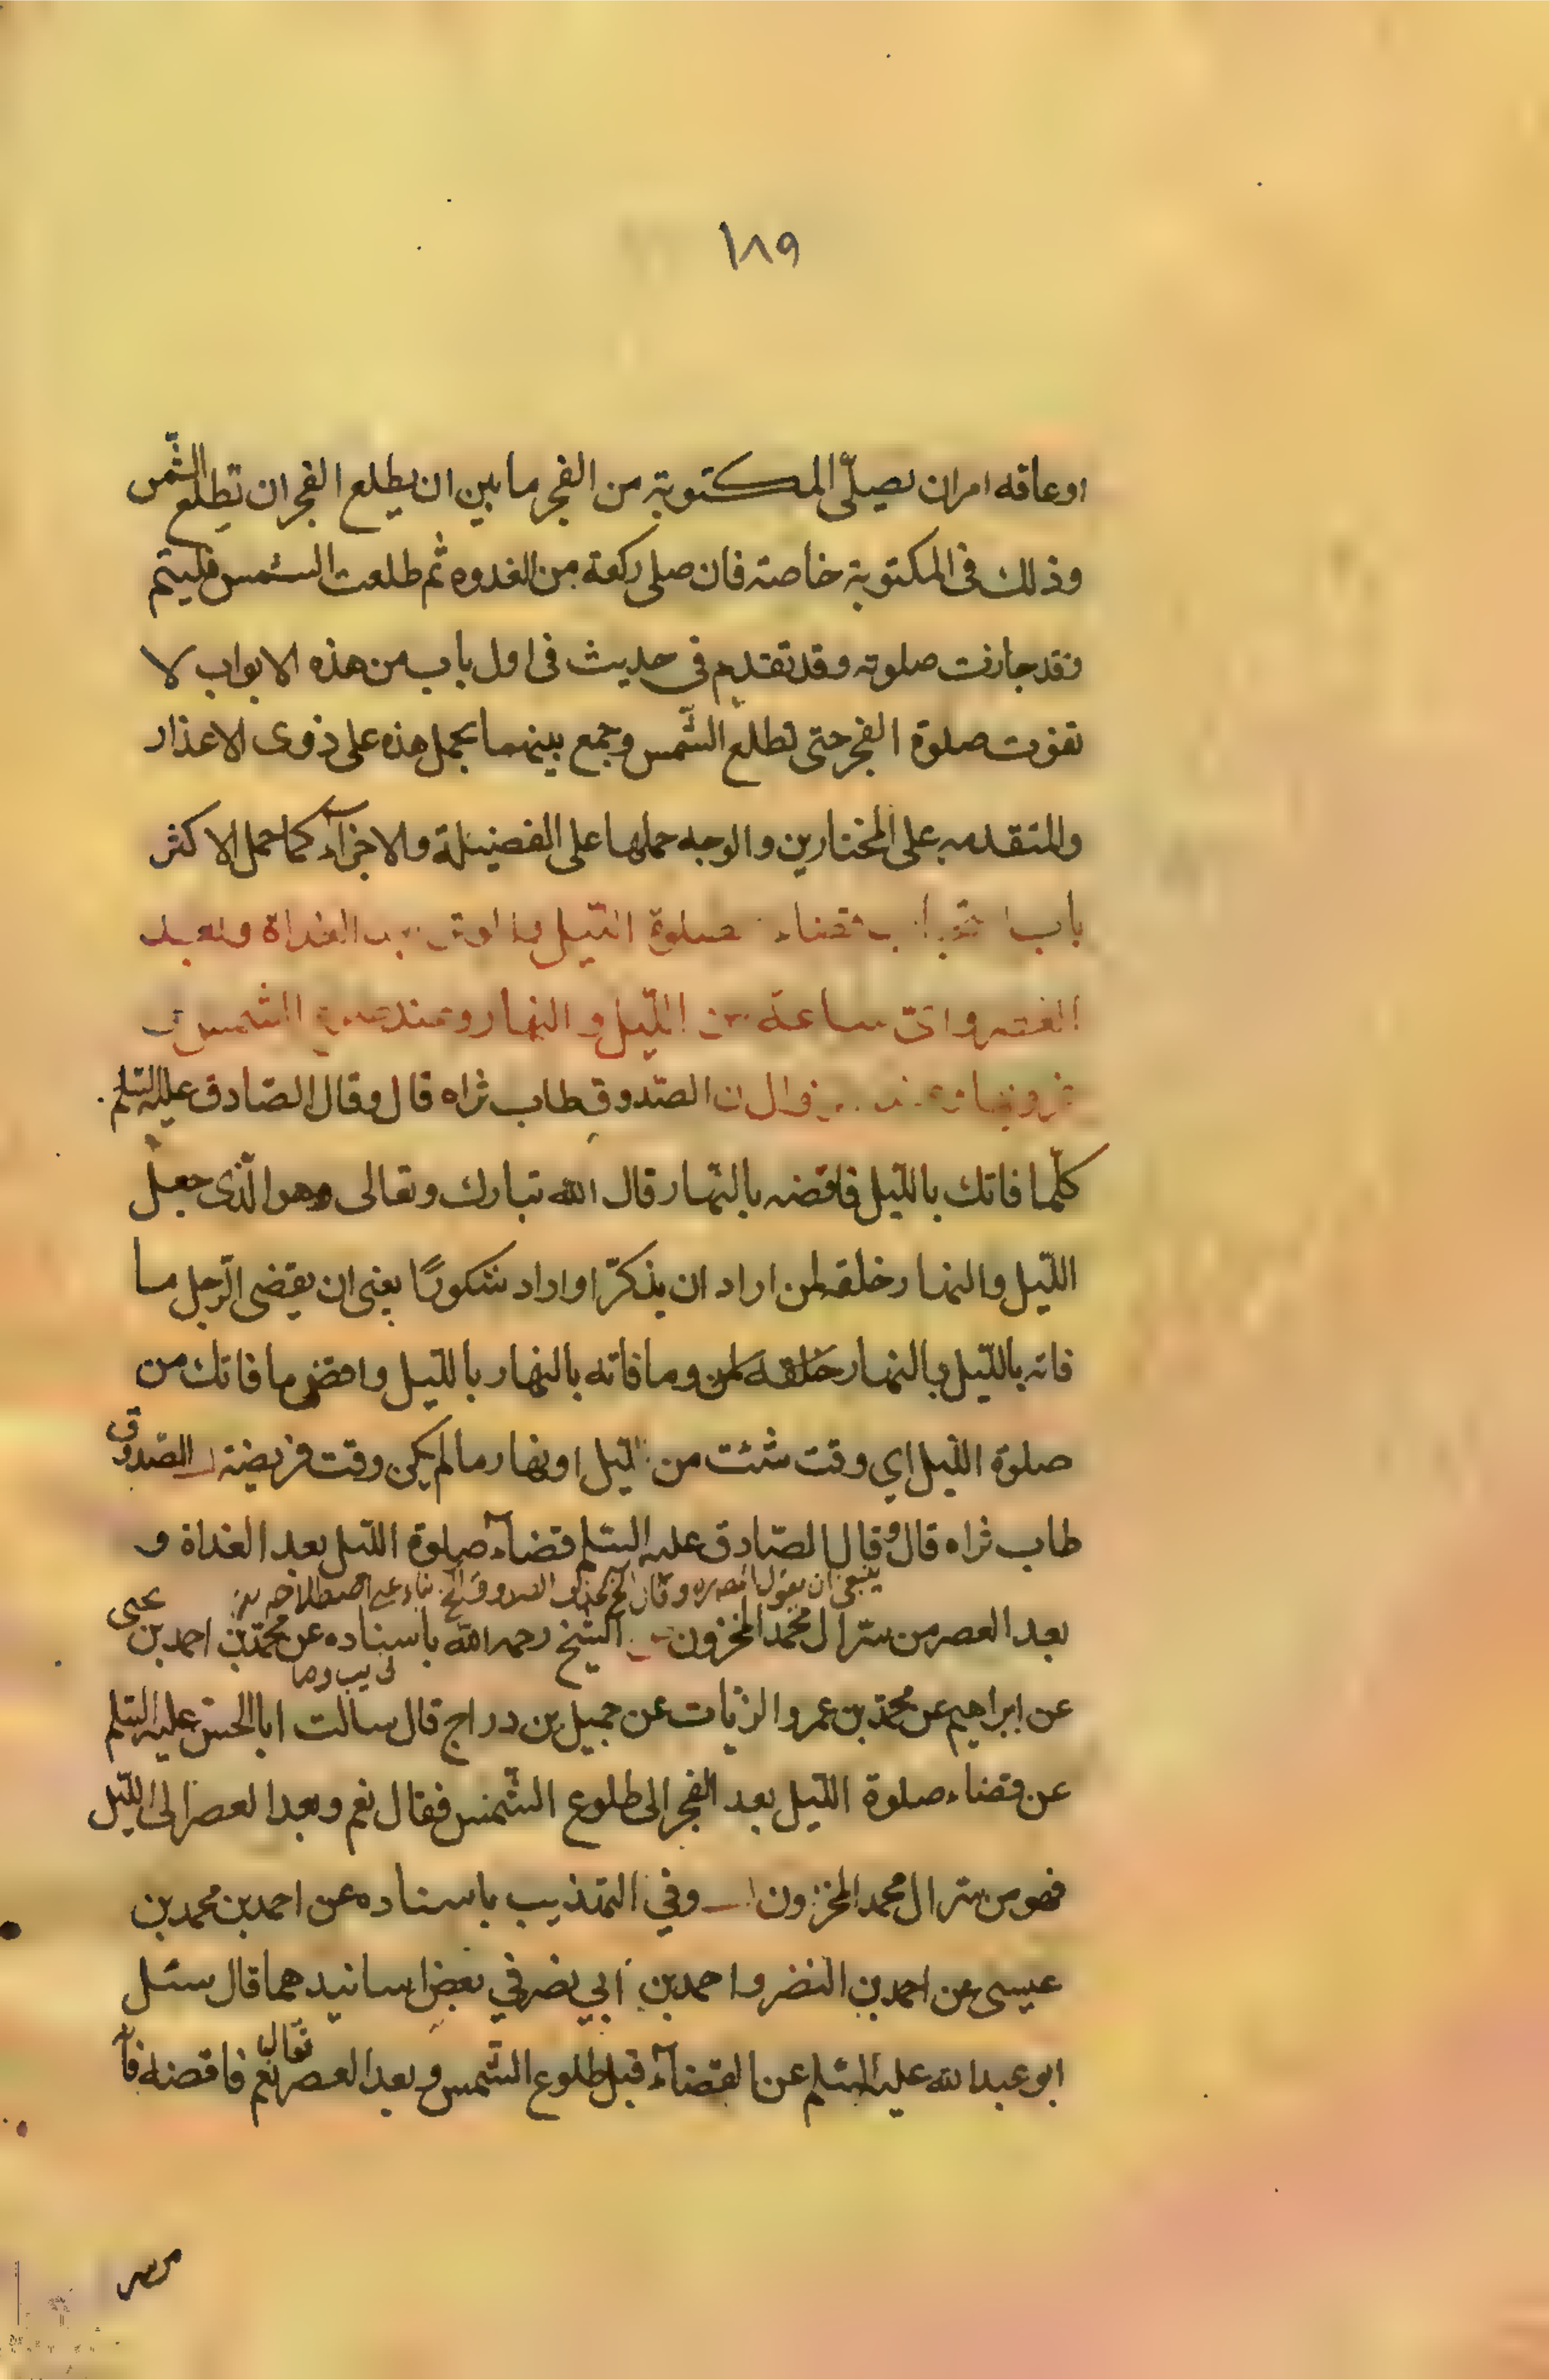 ١٨٩
او عاقه امر ان يصلّى المكتوبة من الفجر ما بين ان يطلع الفجر ان تطلع الشّمس
وذلك فى المكتوبة خاصته فان صلى ركعة من الغدوه ثم طلعت الشمس فليتم
فقد جازت صلوته وقد تقدم فى حديث فى اول باب من هذه الابواب لا
تفوت صلوة الفجر حتى تطلع الشّمس وجمع بينهما بحمل هذه على ذوى الاعذار
والمتقدمه على المختارين والوجه حملها على الفضيلة والاجزآء كما حمل الاكثر
باب قضاء صلوة اللّيل الغداة وبعد
العصر واىّ ساعة من اللّيل والنهار وعند الشمس
الصّدوق طاب ثراه قال وقال الصّادق عليه السّلم
كلّما فاتك باللّيل فاقضه بالنّهار قال الله تبارك وتعالى وهو الّذى جعل
اللّيل والنهار خلقه لمن اراد ان يذكّر او اراد شكورًا يعنى ان يقضى الرّجل ما
فاته باللّيل بالنهار خلقه لمن وما فاته بالنهار باللّيل واقض ما فاتك من
صلوة اللّيل اي وقت شئت من ليل او نهار ما لم يكن وقت فريضة الصّدوق
طاب ثراه قال وقال الصّادق عليه السّلم قضآء صلوة اللّيل بعد الغداة و
ينبغى ان يقول
بعد العصر من سرّ ال محمد المخزون الشّيخ رحمه الله باسناده عن محمّد بن احمد بن يحيى
فى يب وصا
عن ابراهيم عن محمّد بن عمرو الزيّات عن جميل بن دراج قال سالت ابا الحسن عليه السّلم
عن قضاء صلوة اللّيل بعد الفجر الى طلوع الشّمس فقال نعم وبعد العصر الى اللّيل
فهو من سرّ ال محمد المخزون وفي التهذيب باسناده عن احمد بن محمد بن
عيسى عن احمد بن النضر واحمد بن أبي نصر في بعض اسانيدهما قال سئل
ابو عبد الله عليه السّلم عن القضآء قبل طلوع الشّمس وبعد العصر فقال نعم فاقضه فآ